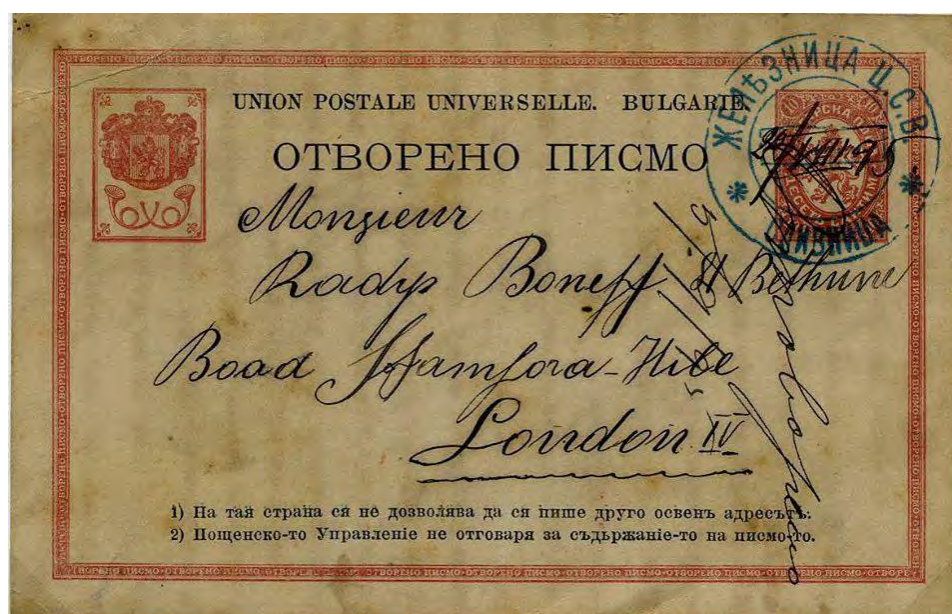 UNION POSTALE UNIVERSELLE. BULGARIE.
ОТВОРЕНО ПИСМО
ЖЕЛѢЗНИЦА Ц.С.В.
СЛИВНИЦА
Monsieur
Radys Boneff 11 Bethune
Boad Stamford-Hibe
London IV
1) На тая страна ся не дозволява да ся пише друго освенъ адресътъ.
2) Пощенско-то Управление не отговаря за съдържание-то на писмо-то.